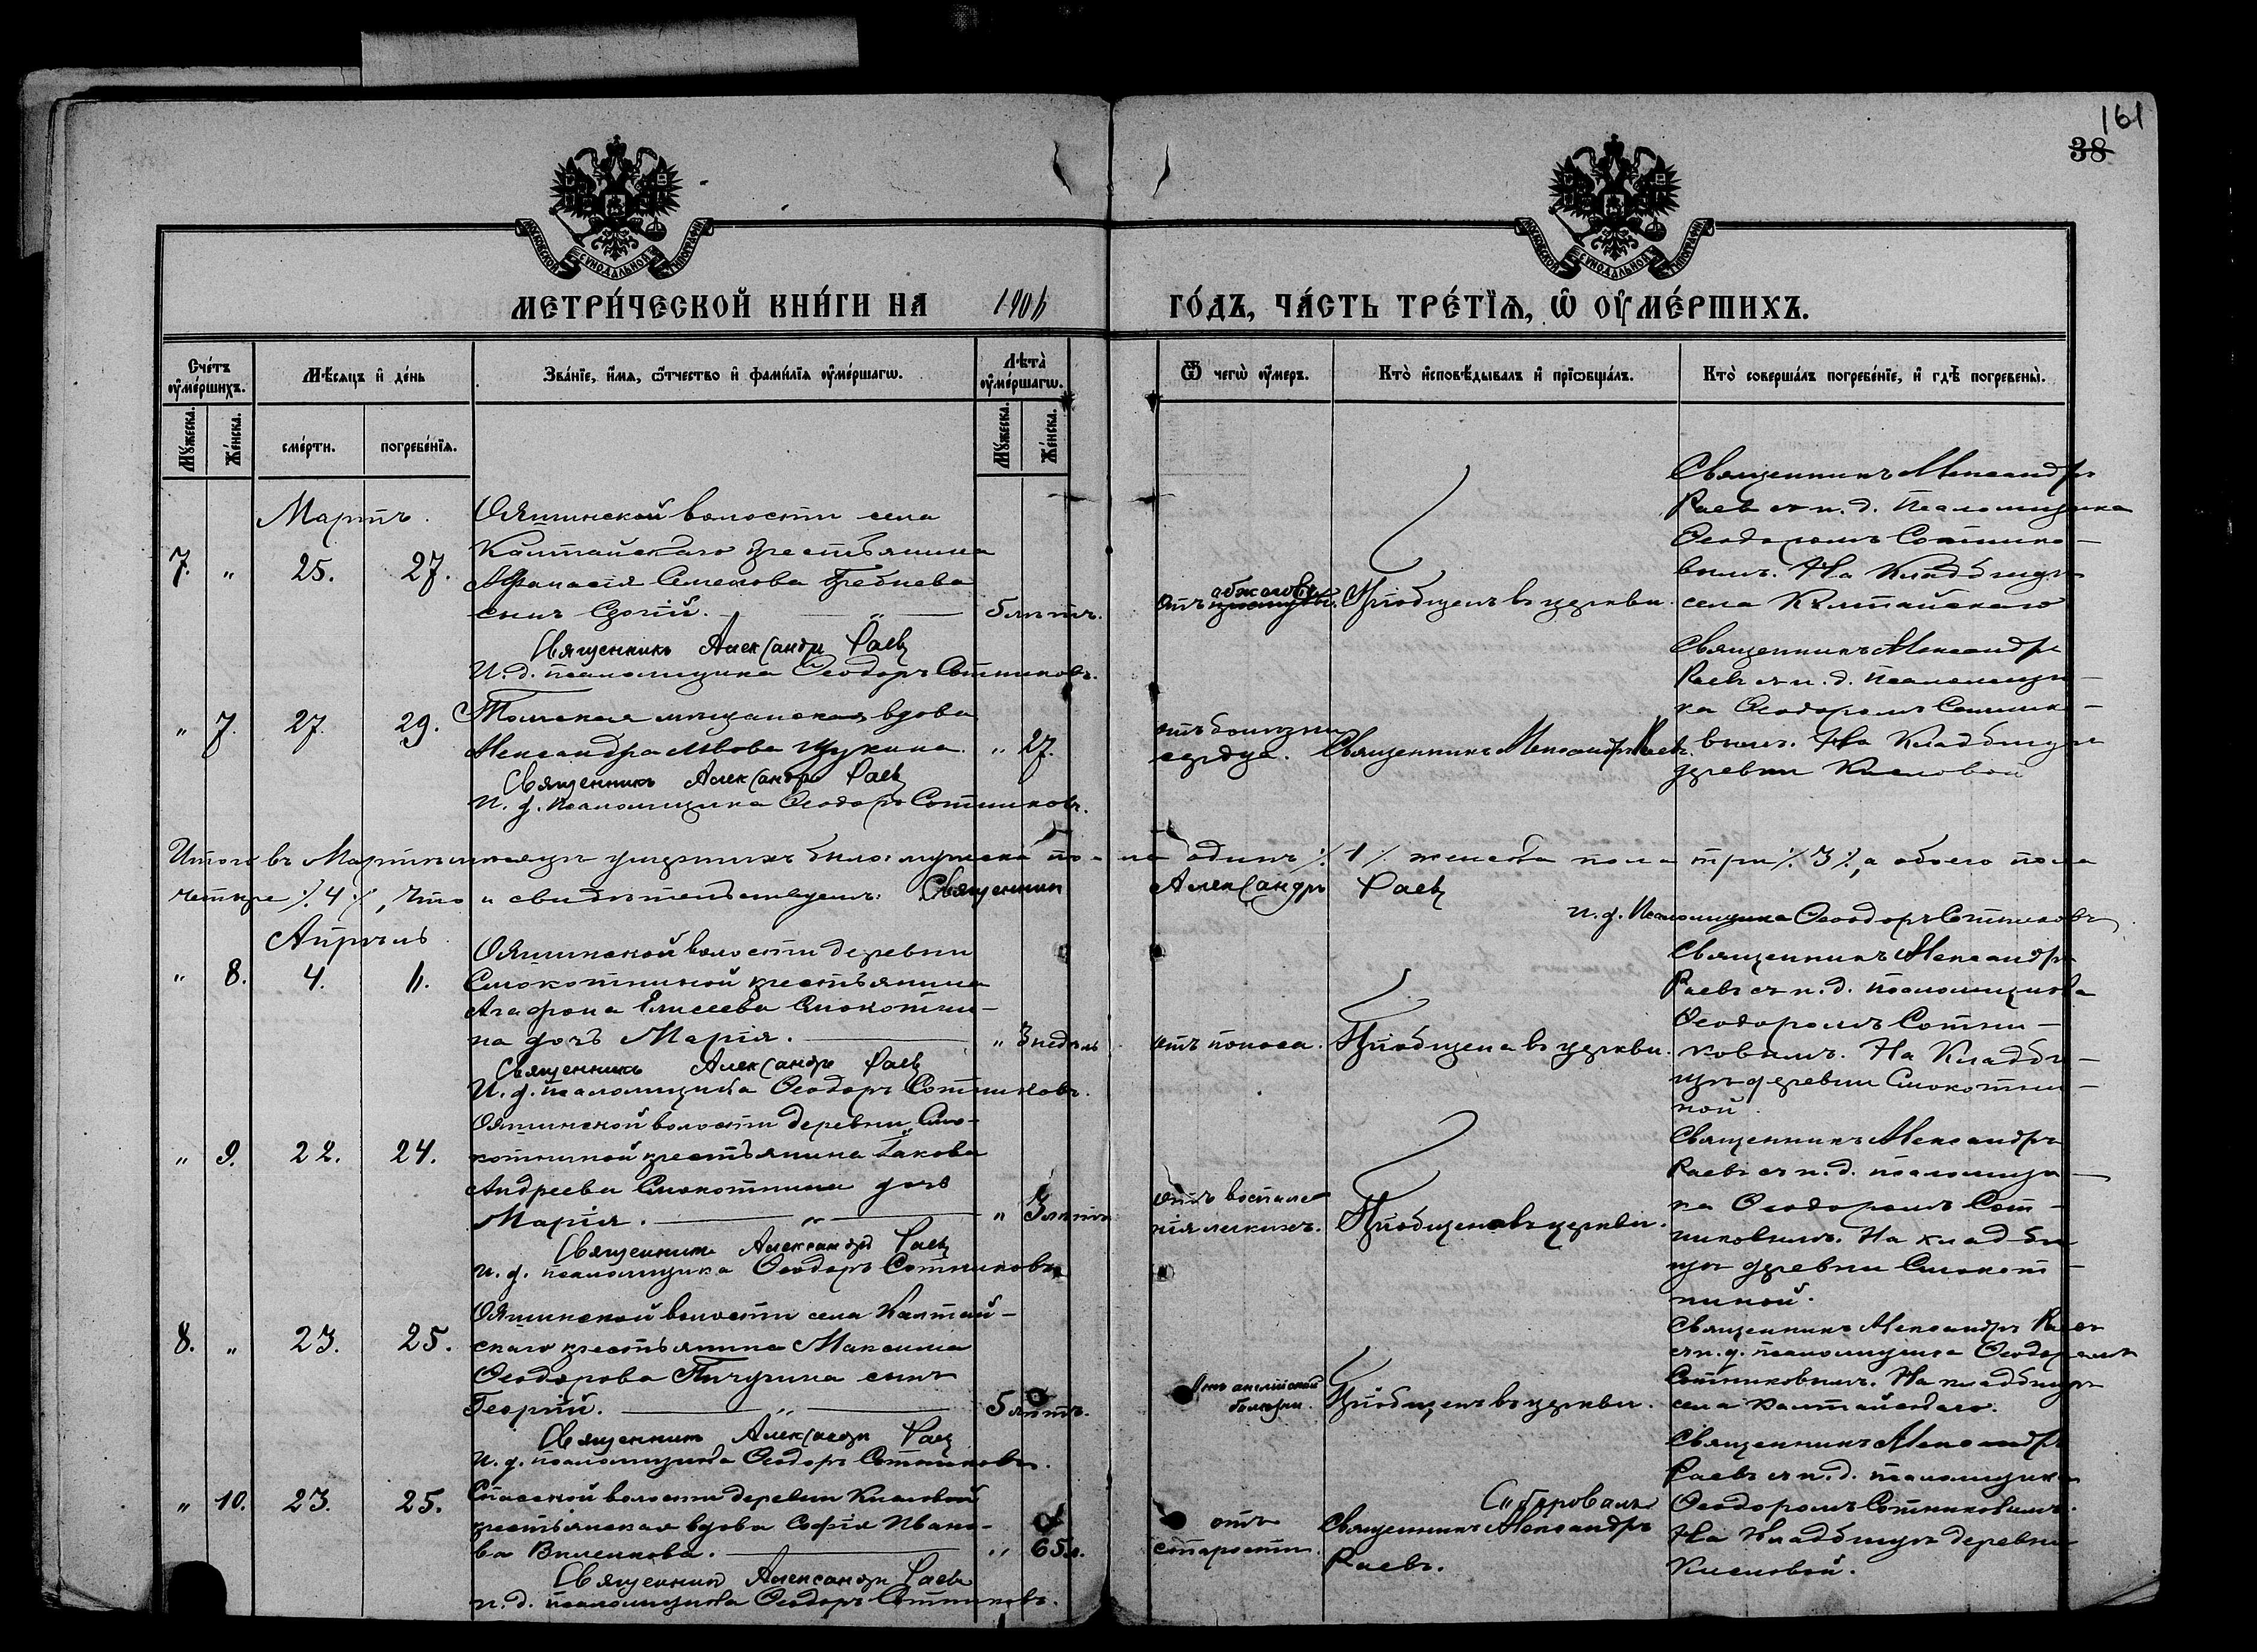 161
38
МОСКОВСКОЙ СУНОДАЛЬНОЙ ТИПОГРАФІИ
МОСКОВСКОЙ СУНОДАЛЬНОЙ ТИПОГРАФІИ
МЕТРИ́ЧЕСКОЙ КНИ́ГИ НА 1906 ГО́ДЪ, ЧА́СТЬ ТРЕ́ТІѦ, Ѡ ОУМЕ́РШИХЪ.
Сче́тъ оуме́ршихъ.
Мѣ́сяцъ и де́нь
Зва́ніе, и́мя, ѻ҆́тчество и фами́лія оуме́ршагѡ.
Лѣта̀ оуме́ршагѡ.
Ѿ чегѡ̀ оу́меръ.
Кто̀ и҆сповѣ́дывалъ и҆ прїѡбща́лъ.
Кто̀ соверша́лъ погребе́ніе, и҆ гдѣ̀ погребены̀.
Мꙋжеска.
Же́нска.
сме́рти.
погребе́нїя.
Мꙋжеска.
Же́нска.
Мартъ.
7. " 25. 27.
Ояшинской волости села
Калтайскаго крестьянина
Афанасія Семенова Гребнева
сынъ Сергій. — " — 5 лѣтъ.
Священникъ Александръ Раевъ
И. д. псаломщика Ѳеодоръ Сотниковъ.
отъ
Пріобщенъ въ церкви.
Священникъ Александръ
Раевъ съ и. д. псаломщика
Ѳеодоромъ Сотнико-
вымъ. На кладбищѣ
села Калтайскаго
" 7. 27. 29.
Томская мѣщанская вдова
Александра Львова Щукина. " 27.
Священникъ Александръ Раевъ
И. д. псаломщика Ѳеодоръ Сотниковъ.
отъ болѣзни
сердца.
Священникъ Александръ Раевъ.
Священникъ Александръ
Раевъ съ и. д. псаломщи-
ка Ѳеодоромъ Сотнико-
вымъ. На кладбищѣ
деревни Кисловой
Итого въ Мартѣ мѣсяцѣ умершихъ было: мужеска пола одинъ /1/ женска пола три /3/, а обоего пола
четыре /4/, что и свидѣтельствуемъ: Священникъ Александръ Раевъ
и. д. Псаломщика Ѳеодоръ Сотниковъ
Апрѣль
" 8. 4. 6.
Ояшинской волости деревни
Смокотиной крестьянина
Агафона Елисеева Смокоти-
на дочь Марія. — " 3 недѣль
Священникъ Александръ Раевъ
И. д. псаломщика Ѳеодоръ Сотниковъ.
отъ поноса.
Пріобщена въ церкви.
Священникъ Александръ
Раевъ съ и. д. псаломщика
Ѳеодоромъ Сотни-
ковымъ. На кладби-
щѣ деревни Смокоти-
ной.
" 9. 22. 24.
Ояшинской волости деревни Смо-
котиной крестьянина Іакова
Андреева Смокотина дочь
Марія. — " — " 3 лѣтъ
Священникъ Александръ Раевъ
И. д. псаломщика Ѳеодоръ Сотниковъ
отъ воспале-
нія легкихъ.
Пріобщена въ церкви.
Священникъ Александръ
Раевъ съ и. д. псаломщи-
ка Ѳеодоромъ Сот-
никовымъ. На кладби-
щѣ деревни Смокот-
иной.
8. " 23. 25.
Ояшинской волости села Калтай-
скаго крестьянина Максима
Ѳеодорова Пичугина сынъ
Георгій. — " — 5 лѣтъ.
Священникъ Александръ Раевъ
И. д. псаломщика Ѳеодоръ Сотниковъ.
Отъ англійской
болѣзни.
Пріобщенъ въ церкви.
Священникъ Александръ Раевъ
съ и. д. псаломщика Ѳеодоромъ
Сотниковымъ. На кладбищѣ
села Калтайскаго.
" 10. 23. 25.
Спасской волости деревни Кисловой
крестьянская вдова Софія Ивано-
ва — " 65 л.
Священникъ Александръ Раевъ
И. д. псаломщика Ѳеодоръ Сотниковъ.
отъ
старости.
Священникъ Александръ
Раевъ.
Священникъ Александръ
Раевъ съ и. д. псаломщика
Ѳеодоромъ Сотниковымъ.
На кладбищѣ деревни
Кисловой.